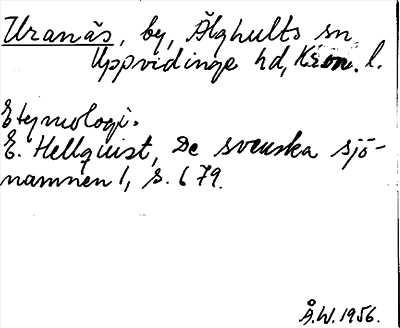 Uranäs, by, Älghults sn
Uppvidinge hd, Kron. l.
Etymologi.
E. Hellquist, De svenska sjö-
namnen 1, s. 679.
Å.W. 1956.